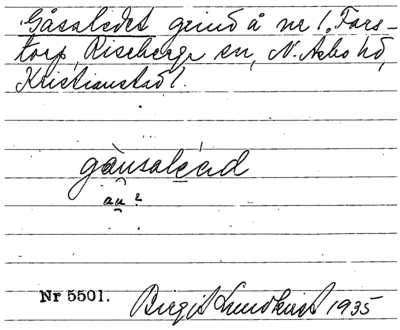 Gåsaledet grind å nr 1, Fors-
torp, Riseberga sn, N. Asbo hd,
Kristianstad l.
gånsaléad
au?
Nr 5501. Birgit Lundkvist 1935